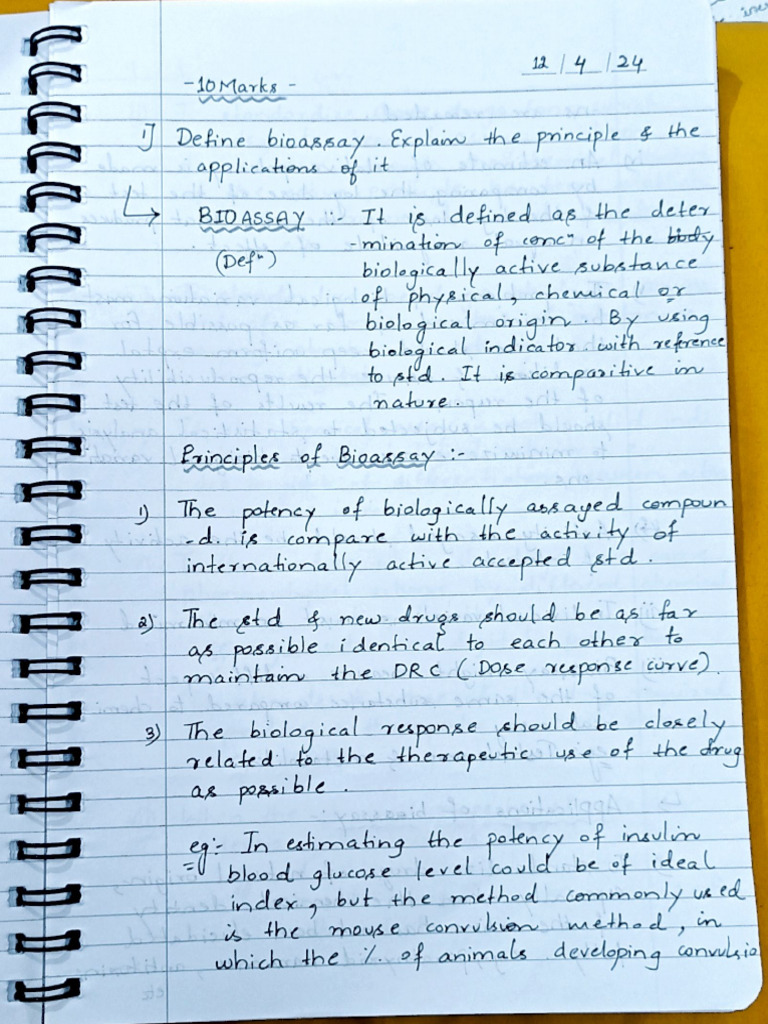 12 / 4 / 24
-10 Marks -
1] Define bioassay. Explain the principle & the
applications of it
BIOASSAY :- It is defined as the deter
(Defⁿ) -mination of concⁿ of the body
biologically active substance
of physical, chemical or
biological origin. By using
biological indicator with reference
to std. It is comparitive in
nature.
Principles of Bioassay :-
1) The potency of biologically assayed compoun
-d. is compare with the activity of
internationally active accepted std.
2) The std & new drugs should be as far
as possible identical to each other to
maintain the DRC (Dose response curve)
3) The biological response should be closely
related to the therapeutic use of the drug
as possible.
eg:- In estimating the potency of insulin
blood glucose level could be of ideal
index, but the method commonly used
is the mouse convulsion method, in
which the % of animals developing convulsio